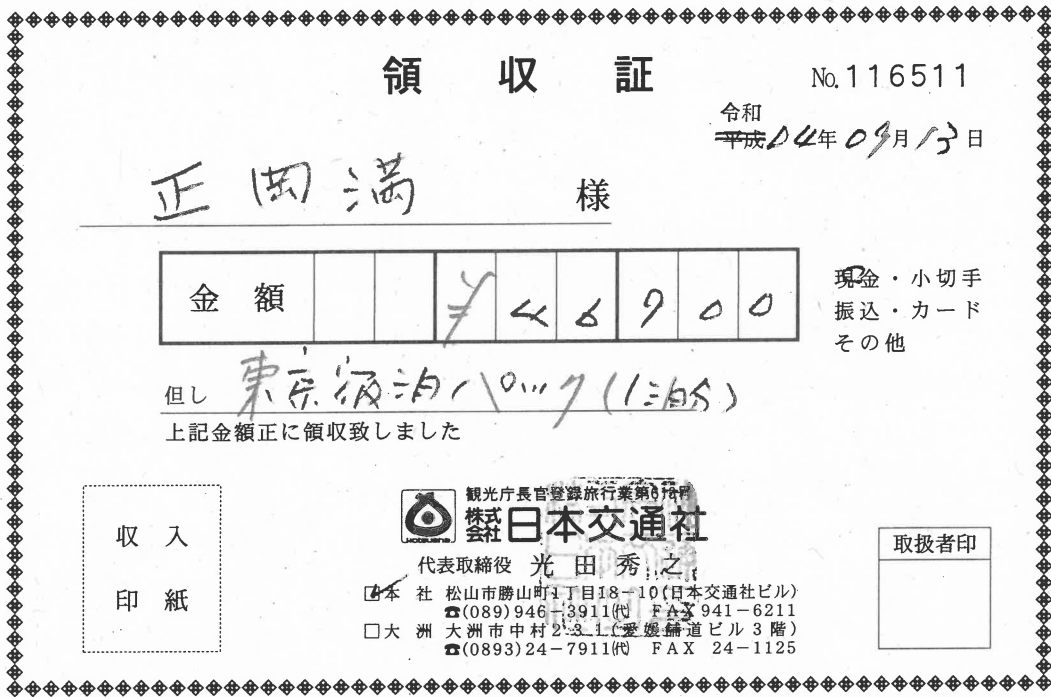 領収証
No.116511
令和
平成 04年09月13日
正岡満 様
金額 ¥46900
現金・小切手
振込・カード
その他
但し 東京宿泊パック(1泊分)
上記金額正に領収致しました
収入
印紙
観光庁長官登録旅行業第612号
株式会社 日本交通社
代表取締役 光田秀之
本社 松山市勝山町1丁目18-10(日本交通社ビル)
☎(089)946-3911(代) FAX 941-6211
□大洲 大洲市中村2-3-1(愛媛舗道ビル3階)
☎(0893)24-7911(代) FAX 24-1125
取扱者印